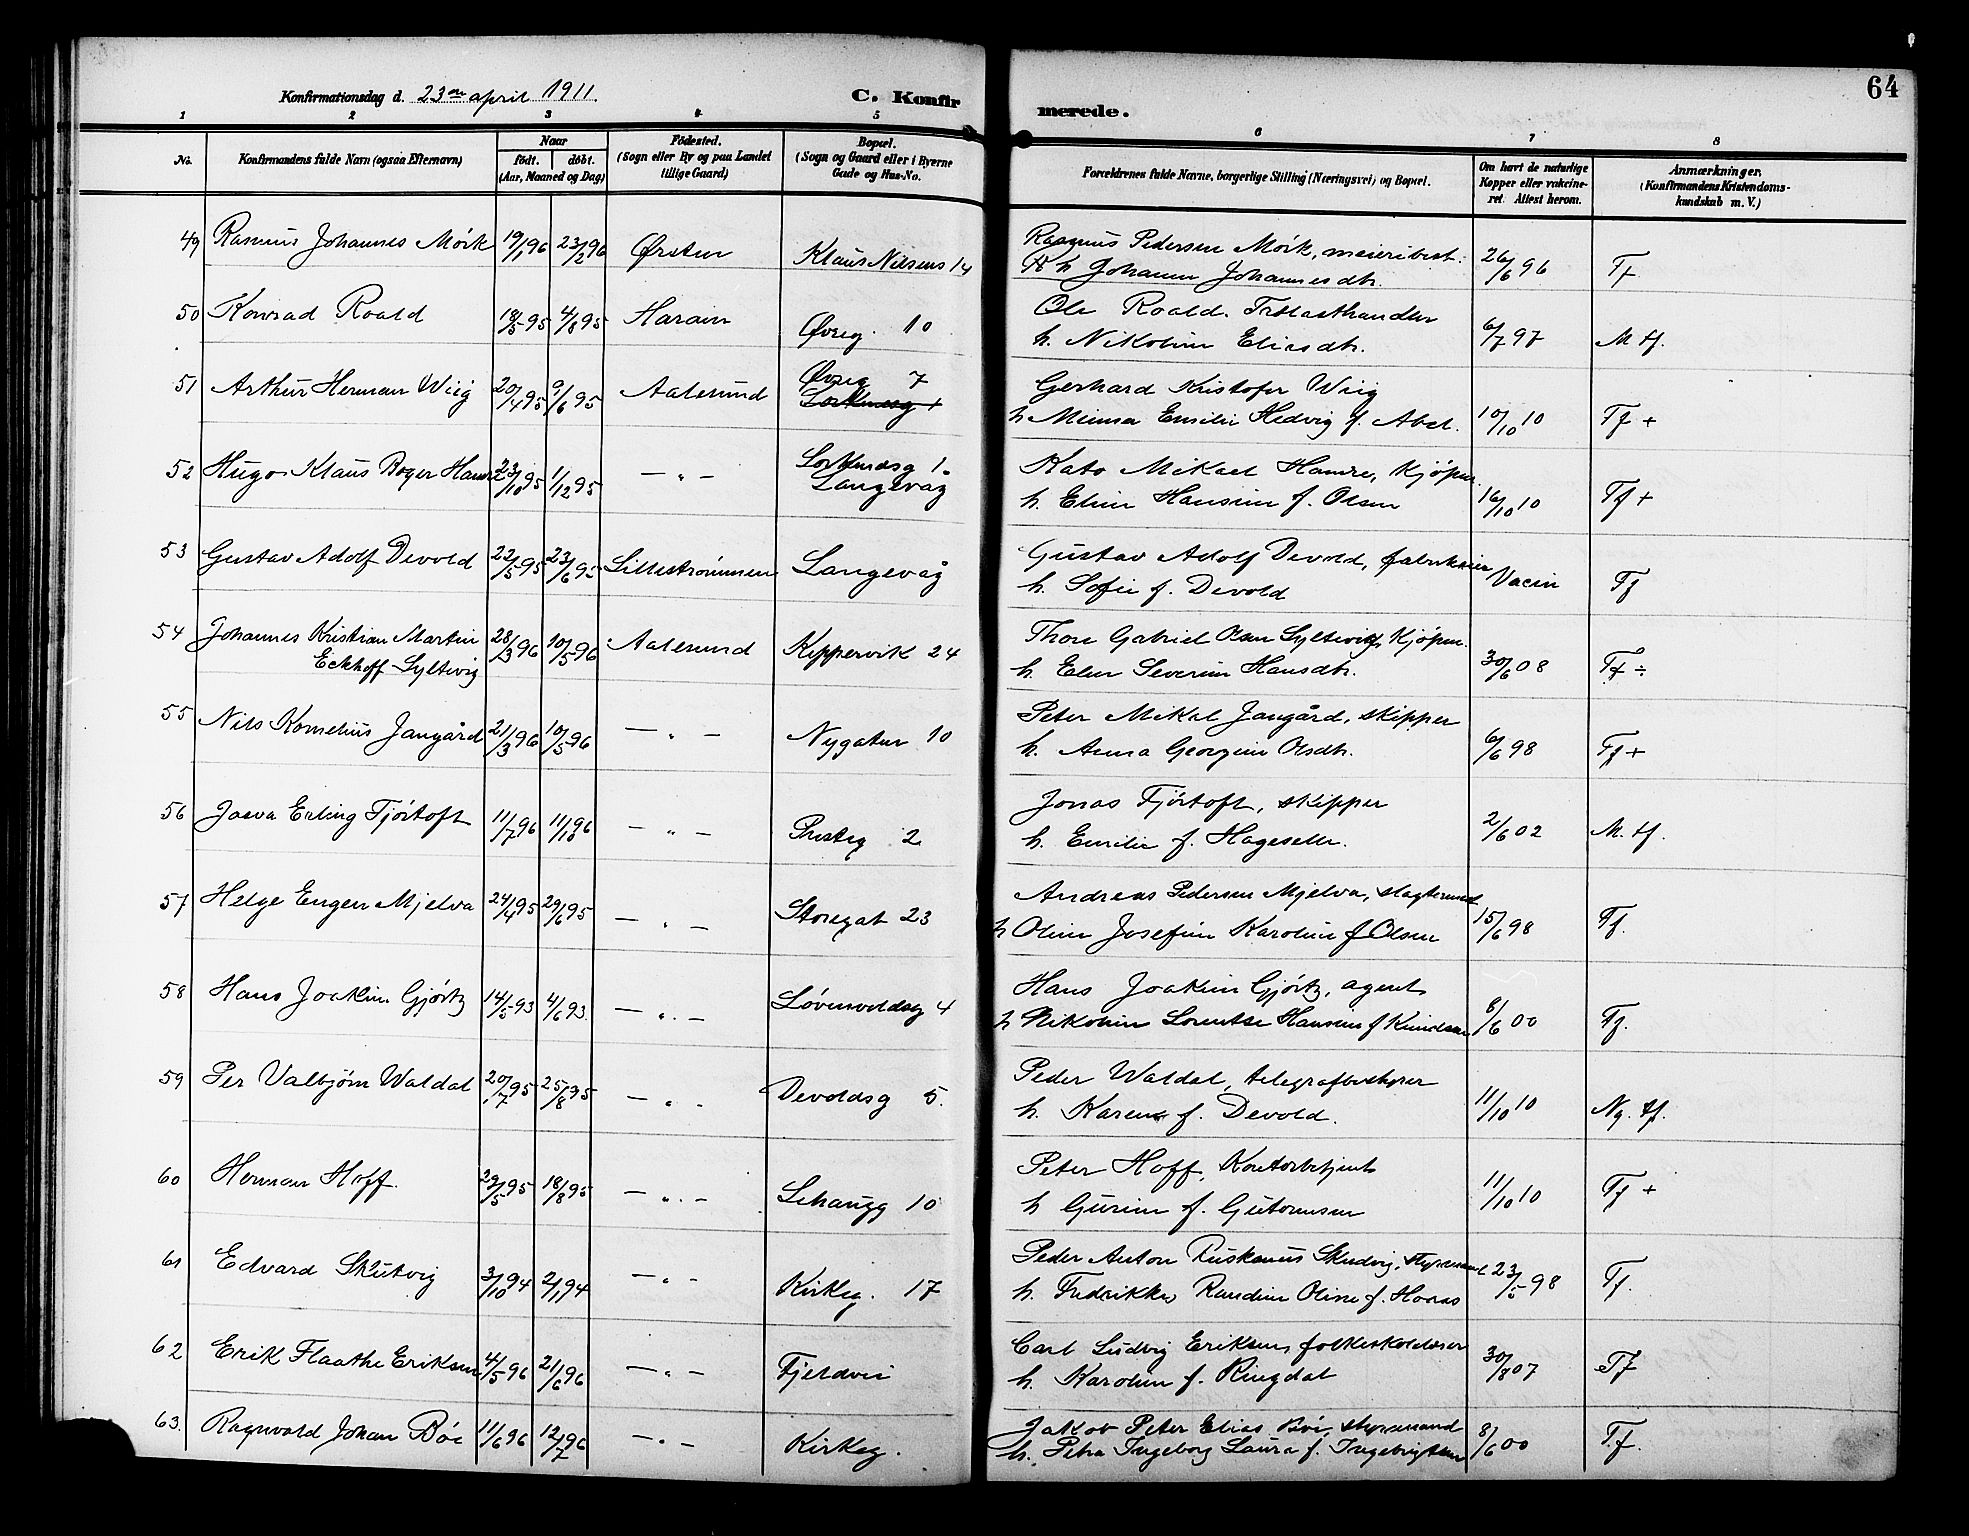 64
Konfirmationsdag d. 23de april 1911.
C. Konfirmerede.
1 2 3 4 5 6 7 8
No.
Konfirmandens fulde Navn (ogsaa Efternavn)
Naar
födt. döbt.
(Aar, Maaned og Dag)
Födested.
(Sogn eller By og paa Landet
tillige Gaard)
Bopæl.
(Sogn og Gaard eller i Byerne
Gade og Hus-No.
Forældrenes fulde Navne, borgerlige Stilling (Næringsvei) og Bopæl.
Om havt de naturlige
Kopper eller vakcine-
ret. Attest herom.
Anmærkninger.
(Konfirmandens Kristendoms-
kundskab m. V.)
49 Rasmus Johannes Mörk 19/1 96 23/2 96 Ørsten Klaus Nilsens 14 Rasmus Pedersen Mörk, meieribest. 26/6 96 Tf
K h Johanne Johannesdtr.
50 Konrad Roald 18/5 95 4/8 95 Haram Øvreg. 10 Ole Roald. Trælasthandler 6/7 97 M tf.
h. Nikoline Eliasdtr.
51 Arthur Herman Wiig 20/4 95 9/6 95 Aalesund Øvreg 7 Gerhard Kristofer Wiig 10/10 10 Tf +
h Minna Emilie Hedvig f. Abel.
52 Hugo Klaus Roger Hamre 23/10 95 1/12 95 — " — Lorkenesg 1. Kato Mikael Hamre, Kjöpm. 16/10 10 Tf +
Langevåg h. Eline Hansine f. Olsen
53 Gustav Adolf Devold 22/5 95 23/6 95 Lillestrømmen Langevåg Gustav Adolf Devold, fabrikeier Vacin Tf
h. Sofie f. Devold
54 Johannes Kristian Martin 28/3 96 10/5 96 Aalesund Kippervik 24 Thore Gabriel Olsen Syltevig, Kjöpm. 30/6 08 Tf ÷
Eckhoff Syltevig h. Elen Severine Hansdtr.
55 Nils Kornelius Jangård 21/3 96 10/5 96 — " — Nygaten 10 Peter Mikal Jangård, skipper 6/6 98 Tf +
h. Anna Georgine Olsdtr.
56 Joava Erling Fjörtoft 11/7 96 11/10 96 — " — Presteg 2 Jonas Fjörtoft, skipper 2/6 02 M. tf.
h. Emilie f. Hageseter.
57 Helge Eugen Mjelva 24/4 95 29/6 95 — " — Storegat 23 Andreas Pedersen Mjelva, slagtermest 15/6 98 Tf.
h Oline Josefine Karoline f Olsen
58 Hans Joakim Gjörtz 14/5 93 4/6 93. — " — Løvenvoldsg 4 Hans Joakim Gjörtz, agent 8/6 00 Tf.
h Nikoline Lorentse Hansine f Knudsen
59 Per Valbjørn Waldal 20/7 95 25/8 95 — " — Devoldsg 5. Peder Waldal, telegrafbestyrer 11/10 10 Ng. tf.
h. Karen f. Devold.
60 Herman Hoff. 29/5 95 18/8 95 — " — Lihaugg 10 Peter Hoff, Kontorbetjent 11/10 10 Tf +
h Gurine f. Guttormsen
61 Edvard Skutvig 3/10 94 2/1 94 — " — Kirkeg. 17 Peder Anton Ruskanus Skudvig, styrmand 23/5 98 Tf.
h. Fredrikke Randine Oline f. Hoaas
62 Erik Flaathe Eriksen 4/5 96 21/6 96 — " — Fjeldvei Carl Ludvig Eriksen, folkeskolelærer 30/8 07 Tf
h. Karoline f. Ringdal
63. Ragnvald Johan Böe 11/6 96 12/7 96 — " — Kirkeg. Jakob Peter Elias Böe, styrmand 8/6 00 T.f.
h. Petra Ingeborg Laura f. Ingebrigtsen